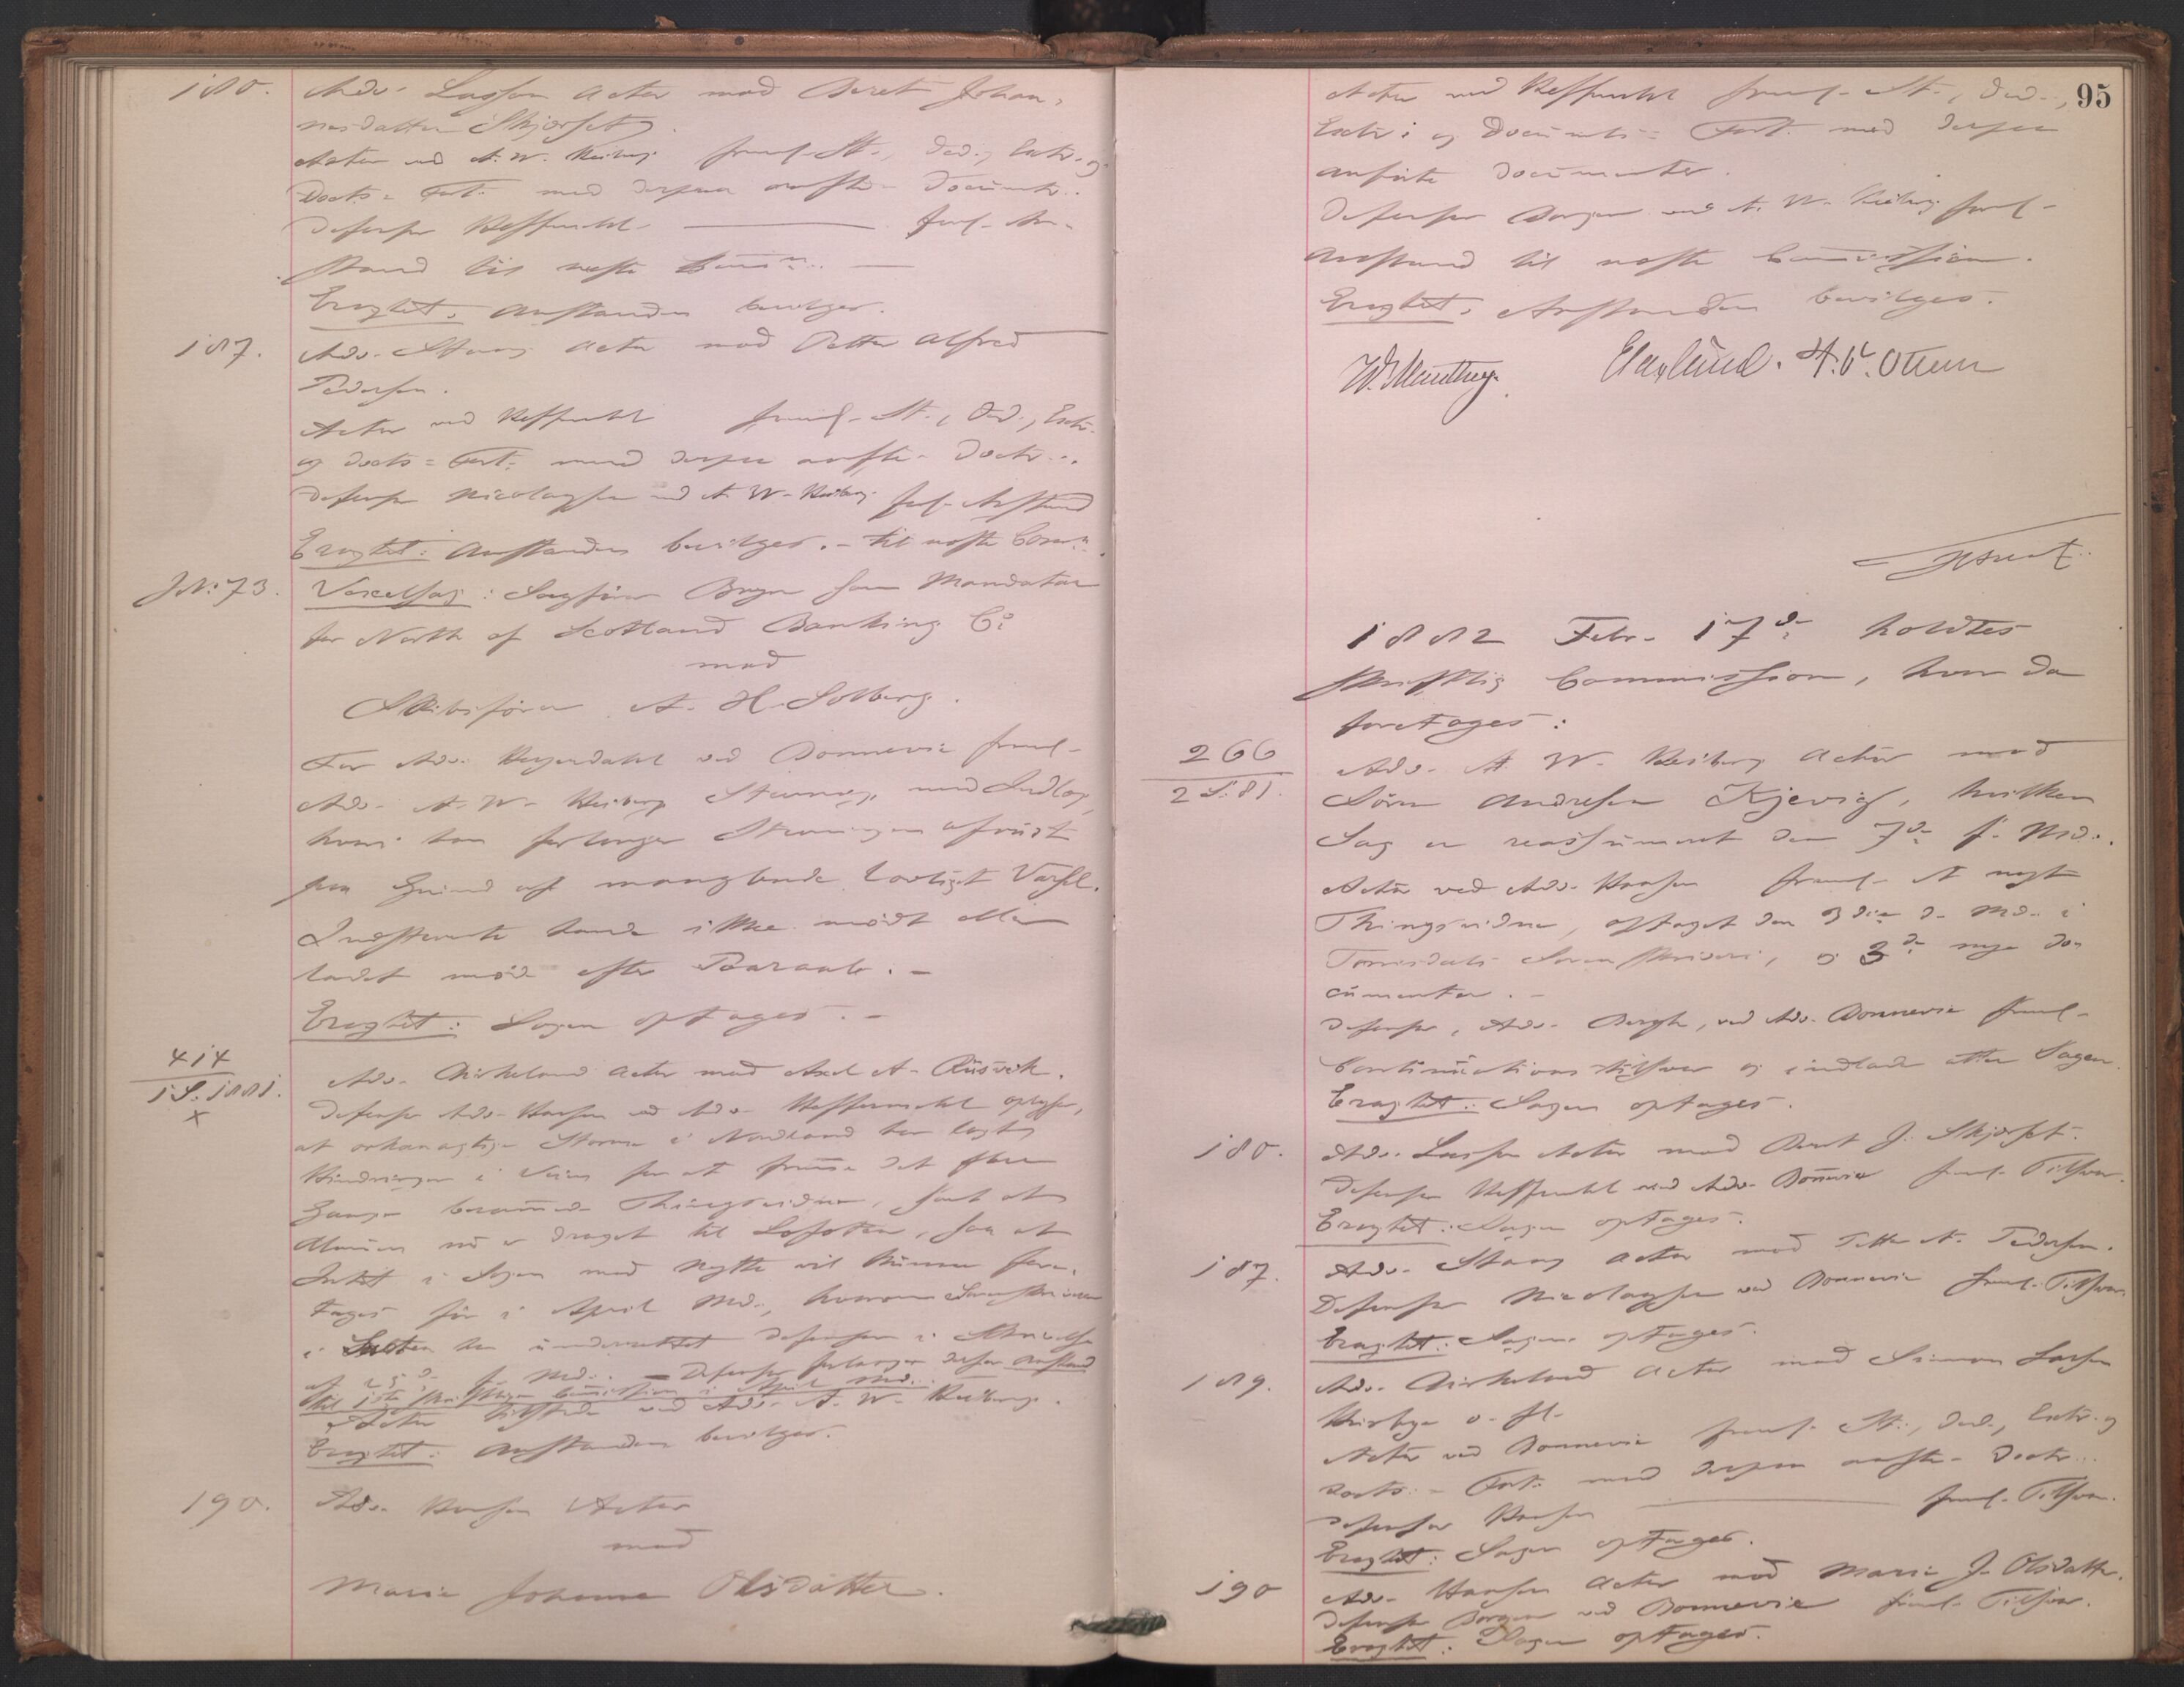 180.
Adv. Lasson Actor mod Beret Johan-
nesdatter Skjørset
Actor ved A. W. Heiberg freml. St., Ded., Extr. og
Docts = Fort. med derpaa anførte Documenter.
Defensor Heffermehl freml. An-
stand til næste Comm.
Eragtet: Anstanden bevilges.
187.
Adv. Stang Actor mod Petter Alfred
Pedersen.
Actor ved Heffermehl freml. St., Ded., Extr.
og Docts = Fort. med derpaa anførte Doctr.
Defensor Nicolaysen ved A. W. Heiberg forl. Anstand
Eragtet: Anstanden bevilges. - til næste Comm.
J. No. 73.
Vexelsag: Sagfører Bryn som Mandatar
for North of Scotland Banking Co
mod
Skibsfører A. H. Solberg.
For Adv. Heyerdahl ved Bonnevie freml.
Adv. A. W. Heiberg Stævning med Indlæg,
hvori han forlanger Stævningen afvist
paa Grund af manglende lovligt Varsel.
Indstevnte havde ikke mødt eller
ladet møde efter Paaraab. -
Eragtet: Sagen optages. -
414
1 S. 1881.
x
Adv. Birkeland Actor mod Axel A. Røsvik.
Defensor Adv. Hansen ved Adv. Heffermehl oplyser,
at orkanagtige Storme i Nordland har lagt
Hindringer i Veien for at fremme det flere
Gange berammede Thingsvidne, samt at
Almuen nu er draget til Lofoten, saa at
Intet i Sagen med Nytte vil kunne fore-
tages før i April Md., hvorom Sorenskriveren
i Salten har underrettet Defensor i Skrivelse
af 25de f. Md. - Defensor forlanger derfor Anstand
til 1ste skriftlige Commission i April Md.
Actor tilstede ved Adv. A. W. Heiberg.
Eragtet: Anstanden bevilges.
190.
Adv. Hansen Actor
mod
Marie Johanne Olsdatter.
95
Actor ved Heffermehl freml. St., Ded.,
Extr. og Documents = Fort. med derpaa
anførte Documenter.
Defensor Borgen ved A. W. Heiberg forl.
Anstand til næste Commission.
Eragtet: Anstanden bevilges.
1882 Febr. 17de holdtes
skriftlig Commission, hvor da
foretages:
266
2 S. 81.
Adv. A. W. Heiberg Actor mod
Søren Andresen Kjevig, hvilken
Sag er reassumeret den 7de f. Md.
Actor ved Adv. Hansen freml. et nyt
Thingsvidne, optaget den 3die d. Md. i
Torrisdals Sorenskriveri, og 3de nye Do-
cumenter. -
Defensor, Adv. Bergh, ved Adv. Bonnevie freml.
Continuationstilsvar og indlader atter Sagen.
Eragtet: Sagen optages.
180.
Adv. Lasson Actor mod Beret J. Skjørset.
Defensor Heffermehl ved Adv. Bonnevie freml. Tilsvar.
Eragtet: Sagen optages.
187.
Adv. Stang Actor mod Petter A. Pedersen.
Defensor Nicolaysen ved Bonnevie freml. Tilsvar.
Eragtet: Sagen optages.
189.
Adv. Birkeland Actor mod Simon Larsen
o. fl.
Actor ved Bonnevie freml. St., Ded., Extr. og
Docts. = Fort. med derpaa anførte Doctr.
Defensor Hansen freml. Tilsvar.
Eragtet: Sagen optages.
190
Adv. Hansen Actor mod Marie J. Olsdatter.
Defensor Borgen ved Bonnevie freml. Tilsvar.
Eragtet: Sagen optages.